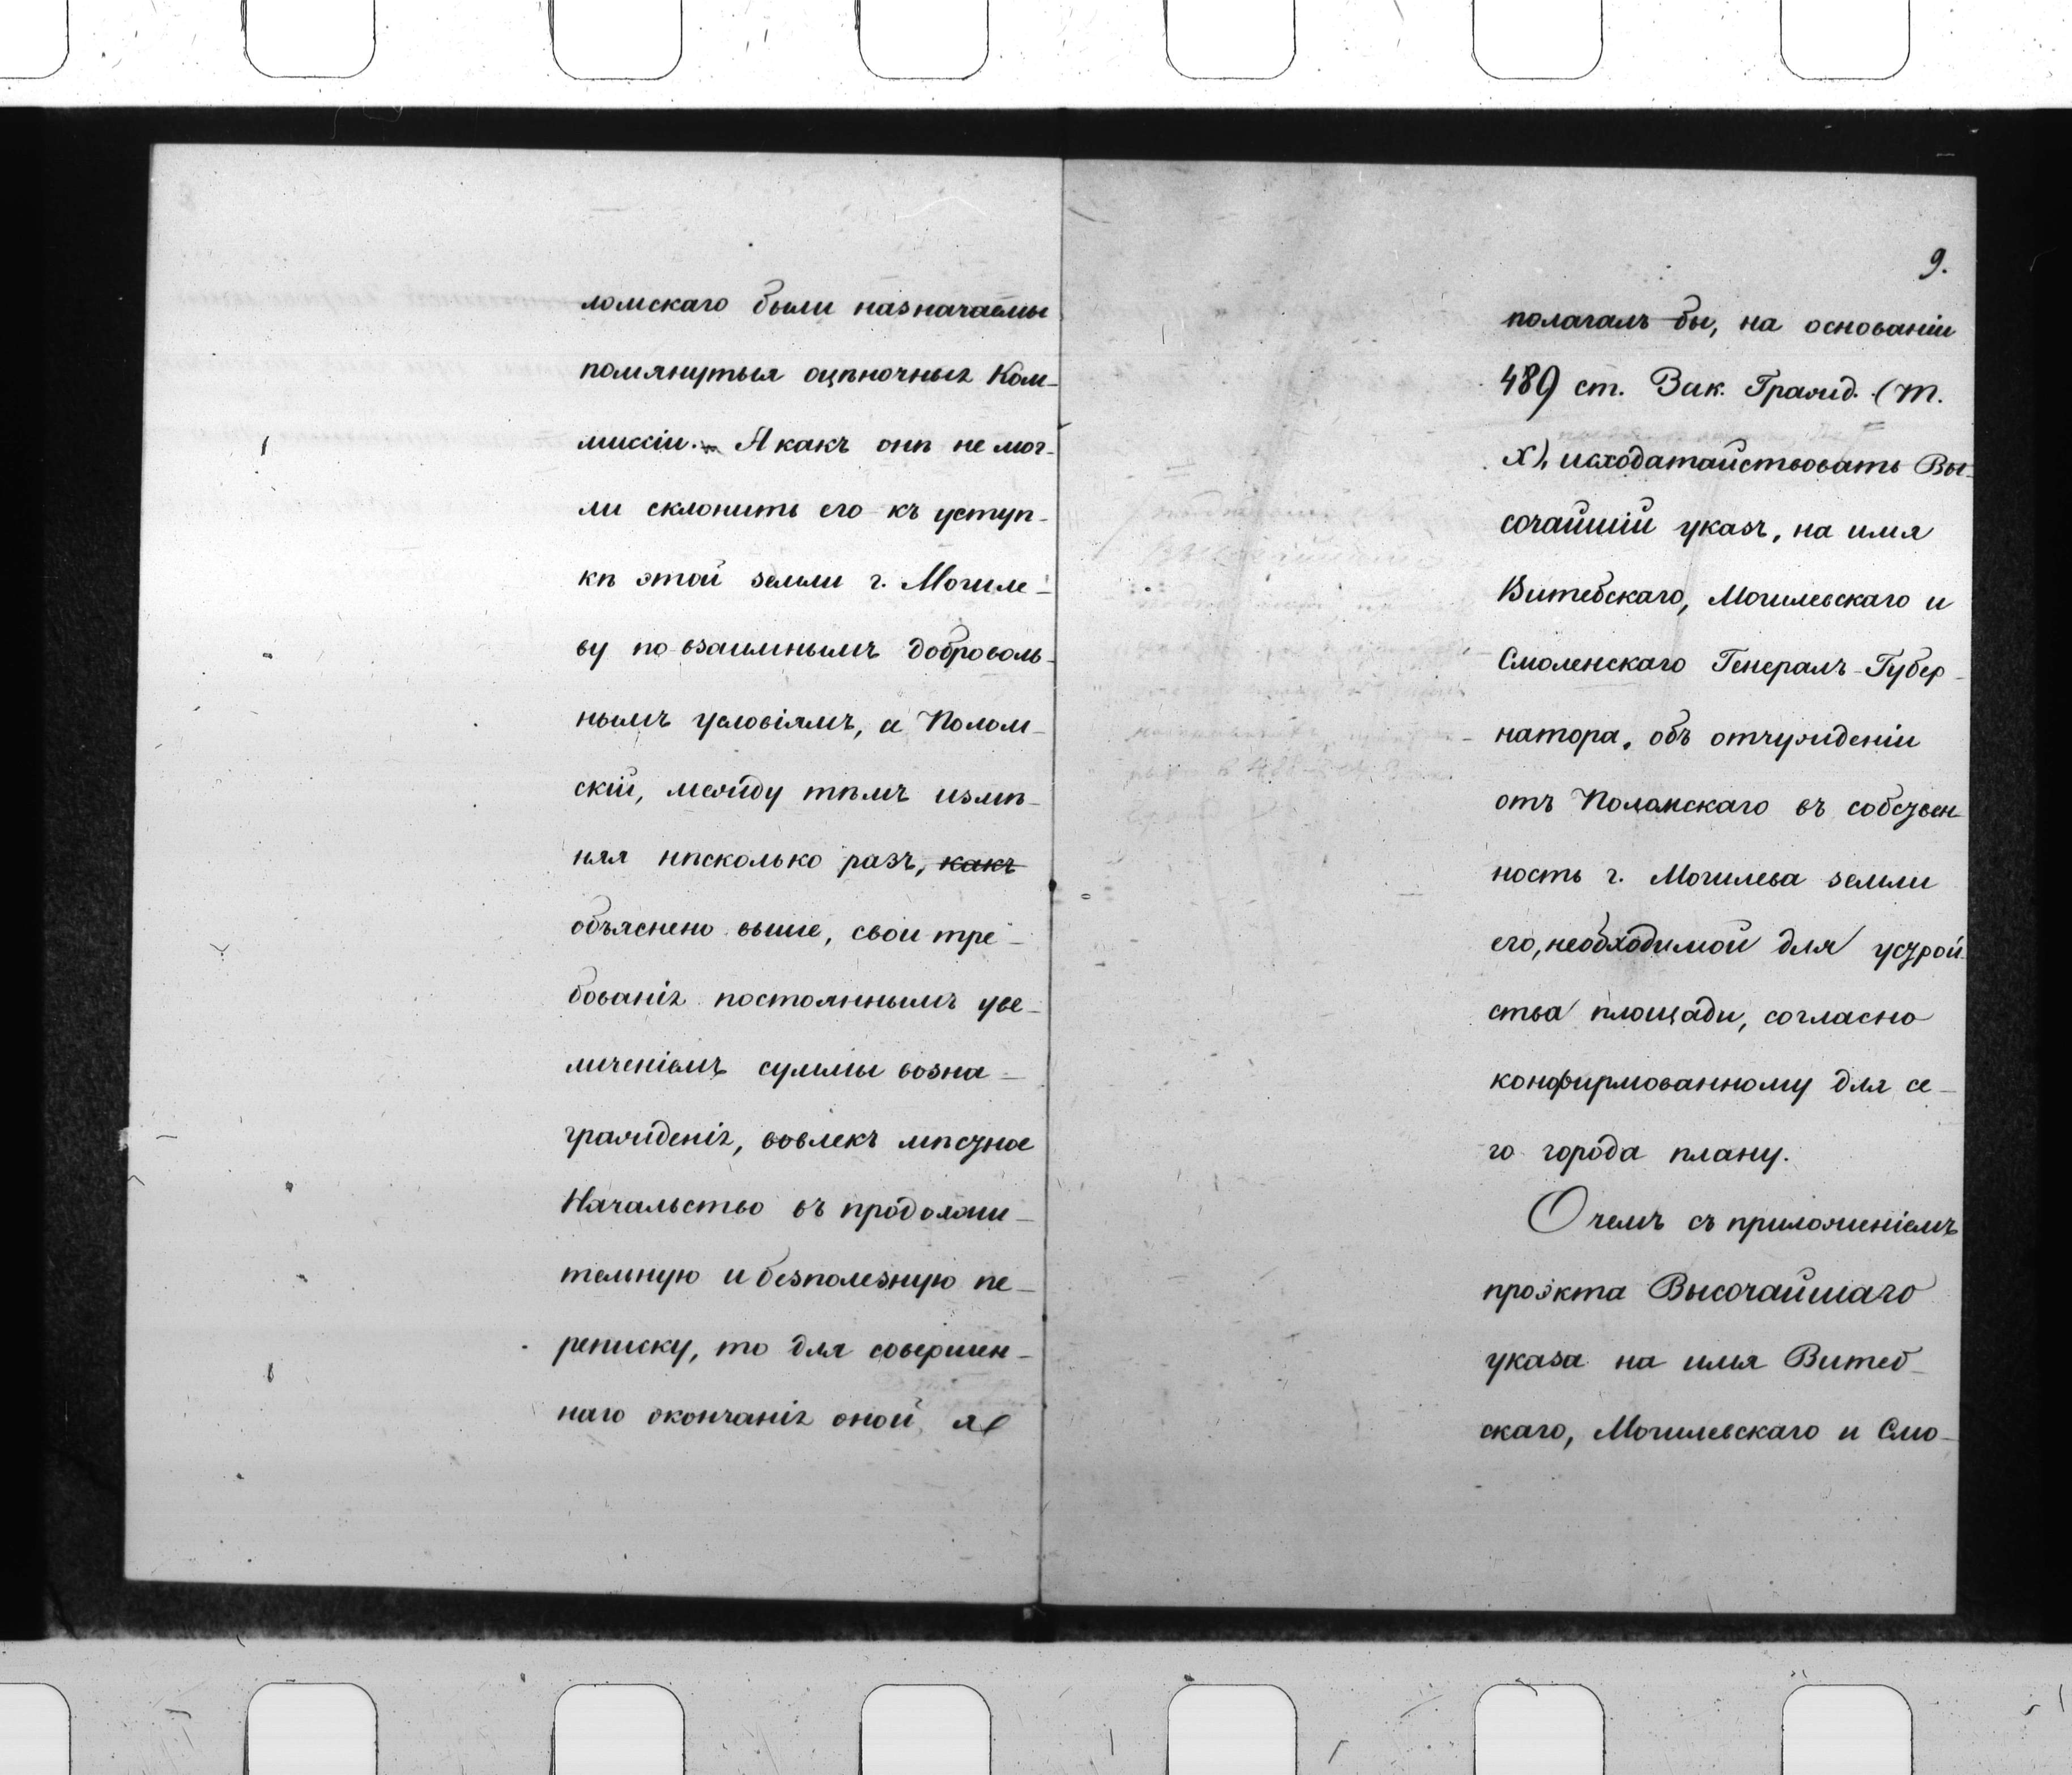 ломскаго были назначаемы
помянутыя оцѣночныя Ком-
миссіи. А какъ онѣ не мог-
ли склонить его къ уступ-
кѣ этой земли г. Могиле-
ву по взаимнымъ доброволь-
нымъ условіямъ, а Полом-
скій, между тѣмъ измѣ-
няя нѣсколько разъ, какъ
объяснено выше, свои тре-
бованія постояннымъ уве-
личеніемъ суммы возна-
гражденія, вовлекъ мѣстное
Начальство въ продолжи-
тельную и безполезную пе-
реписку, то для совершен-
наго окончанія оной, я
9.
полагалъ бы, на основаніи
489 ст. Зак. Гражд. (Т.
X), исходатайствовать Вы-
сочайшій указъ, на имя
Витебскаго, Могилевскаго и
Смоленскаго Генералъ-Губер-
натора, объ отчужденіи
отъ Поломскаго въ собствен-
ность г. Могилева земли
его, необходимой для устрой-
ства площади, согласно
конфирмованному для се-
го города плану.
О чемъ съ приложеніемъ
проэкта Высочайшаго
указа на имя Витеб-
скаго, Могилевскаго и Смо-